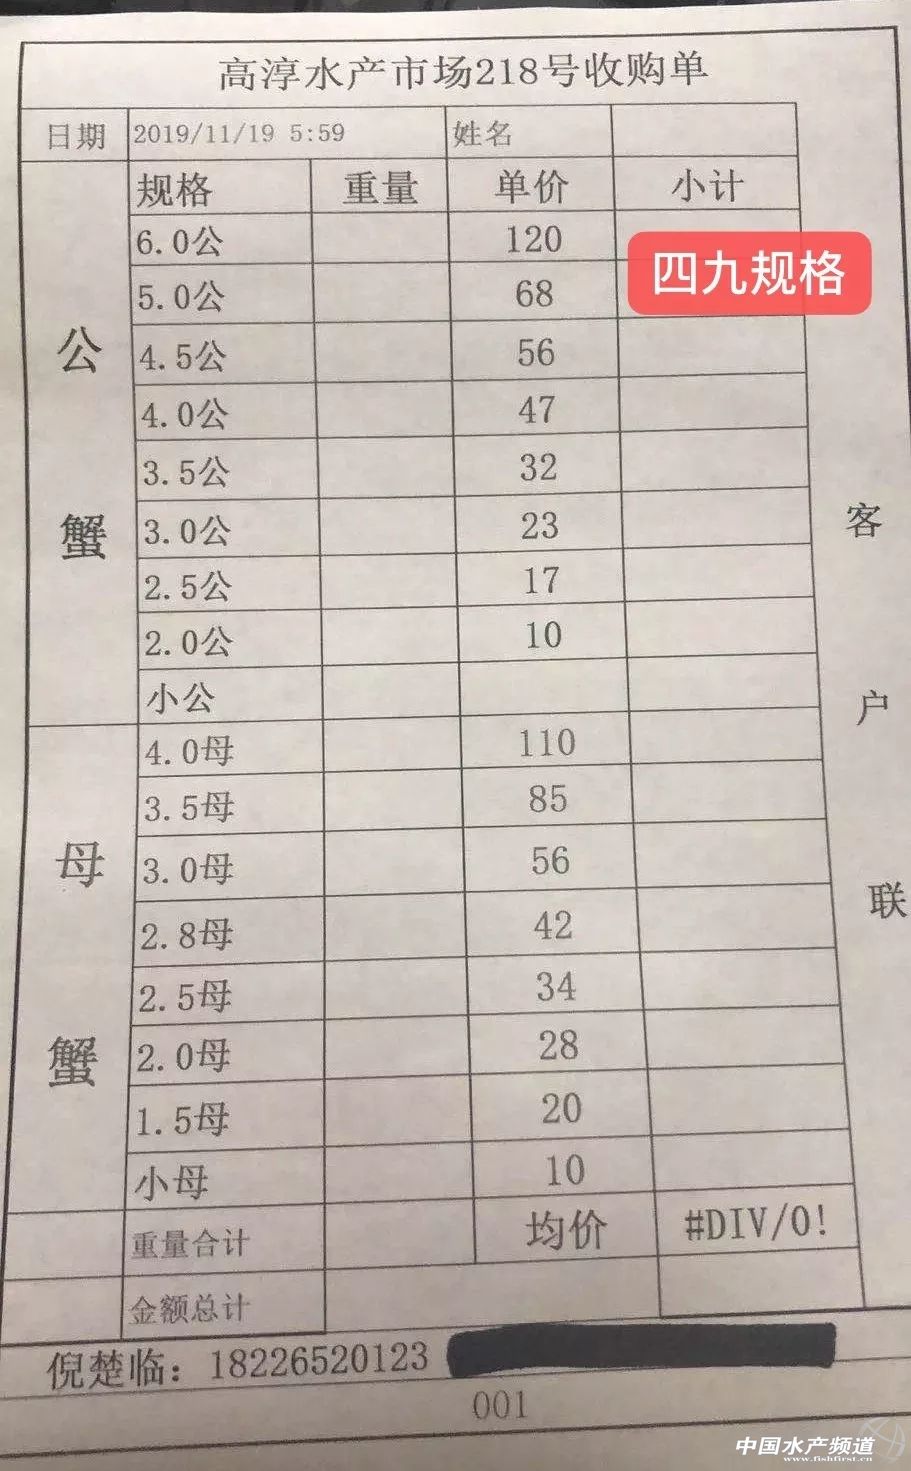 高淳水产市场218号收购单
日期 2019/11/19 5:59 姓名
规格 重量 单价 小计
6.0公 120
四九规格
5.0公 68
公
4.5公 56
4.0公 47
3.5公 32
蟹
3.0公 23
2.5公 17
2.0公 10
小公
4.0母 110
3.5母 85
母
3.0母 56
2.8母 42
2.5母 34
蟹
2.0母 28
1.5母 20
小母 10
重量合计 均价 #DIV/0!
金额总计
客户联
倪楚临: 18226520123
001
中国水产频道
www.fishfirst.cn